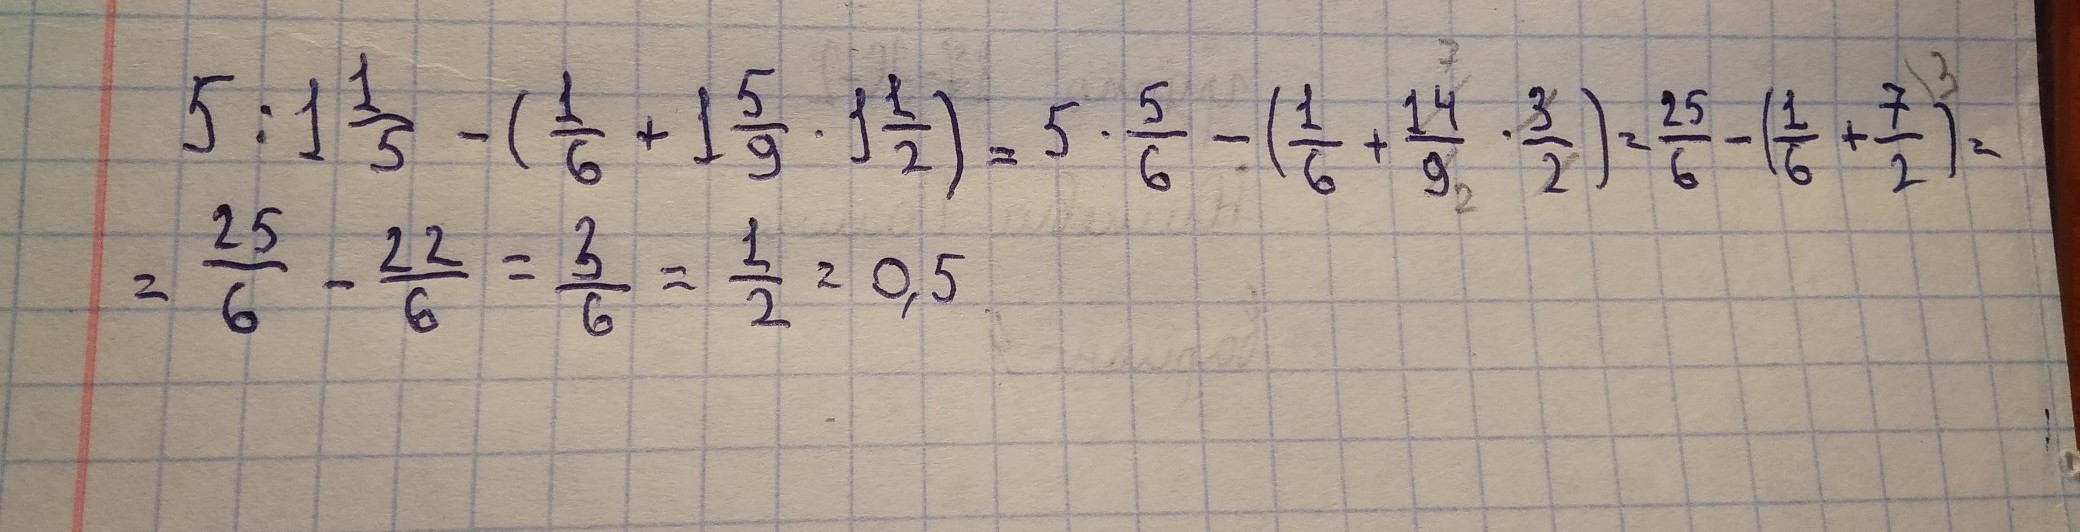 5 : 1 1/5 - (1/6 + 1 5/9 · 1 1/2) = 5 · 5/6 - (1/6 + 14/9 · 3/2) = 25/6 - (1/6 + 7/2) =
= 25/6 - 22/6 = 3/6 = 1/2 = 0,5